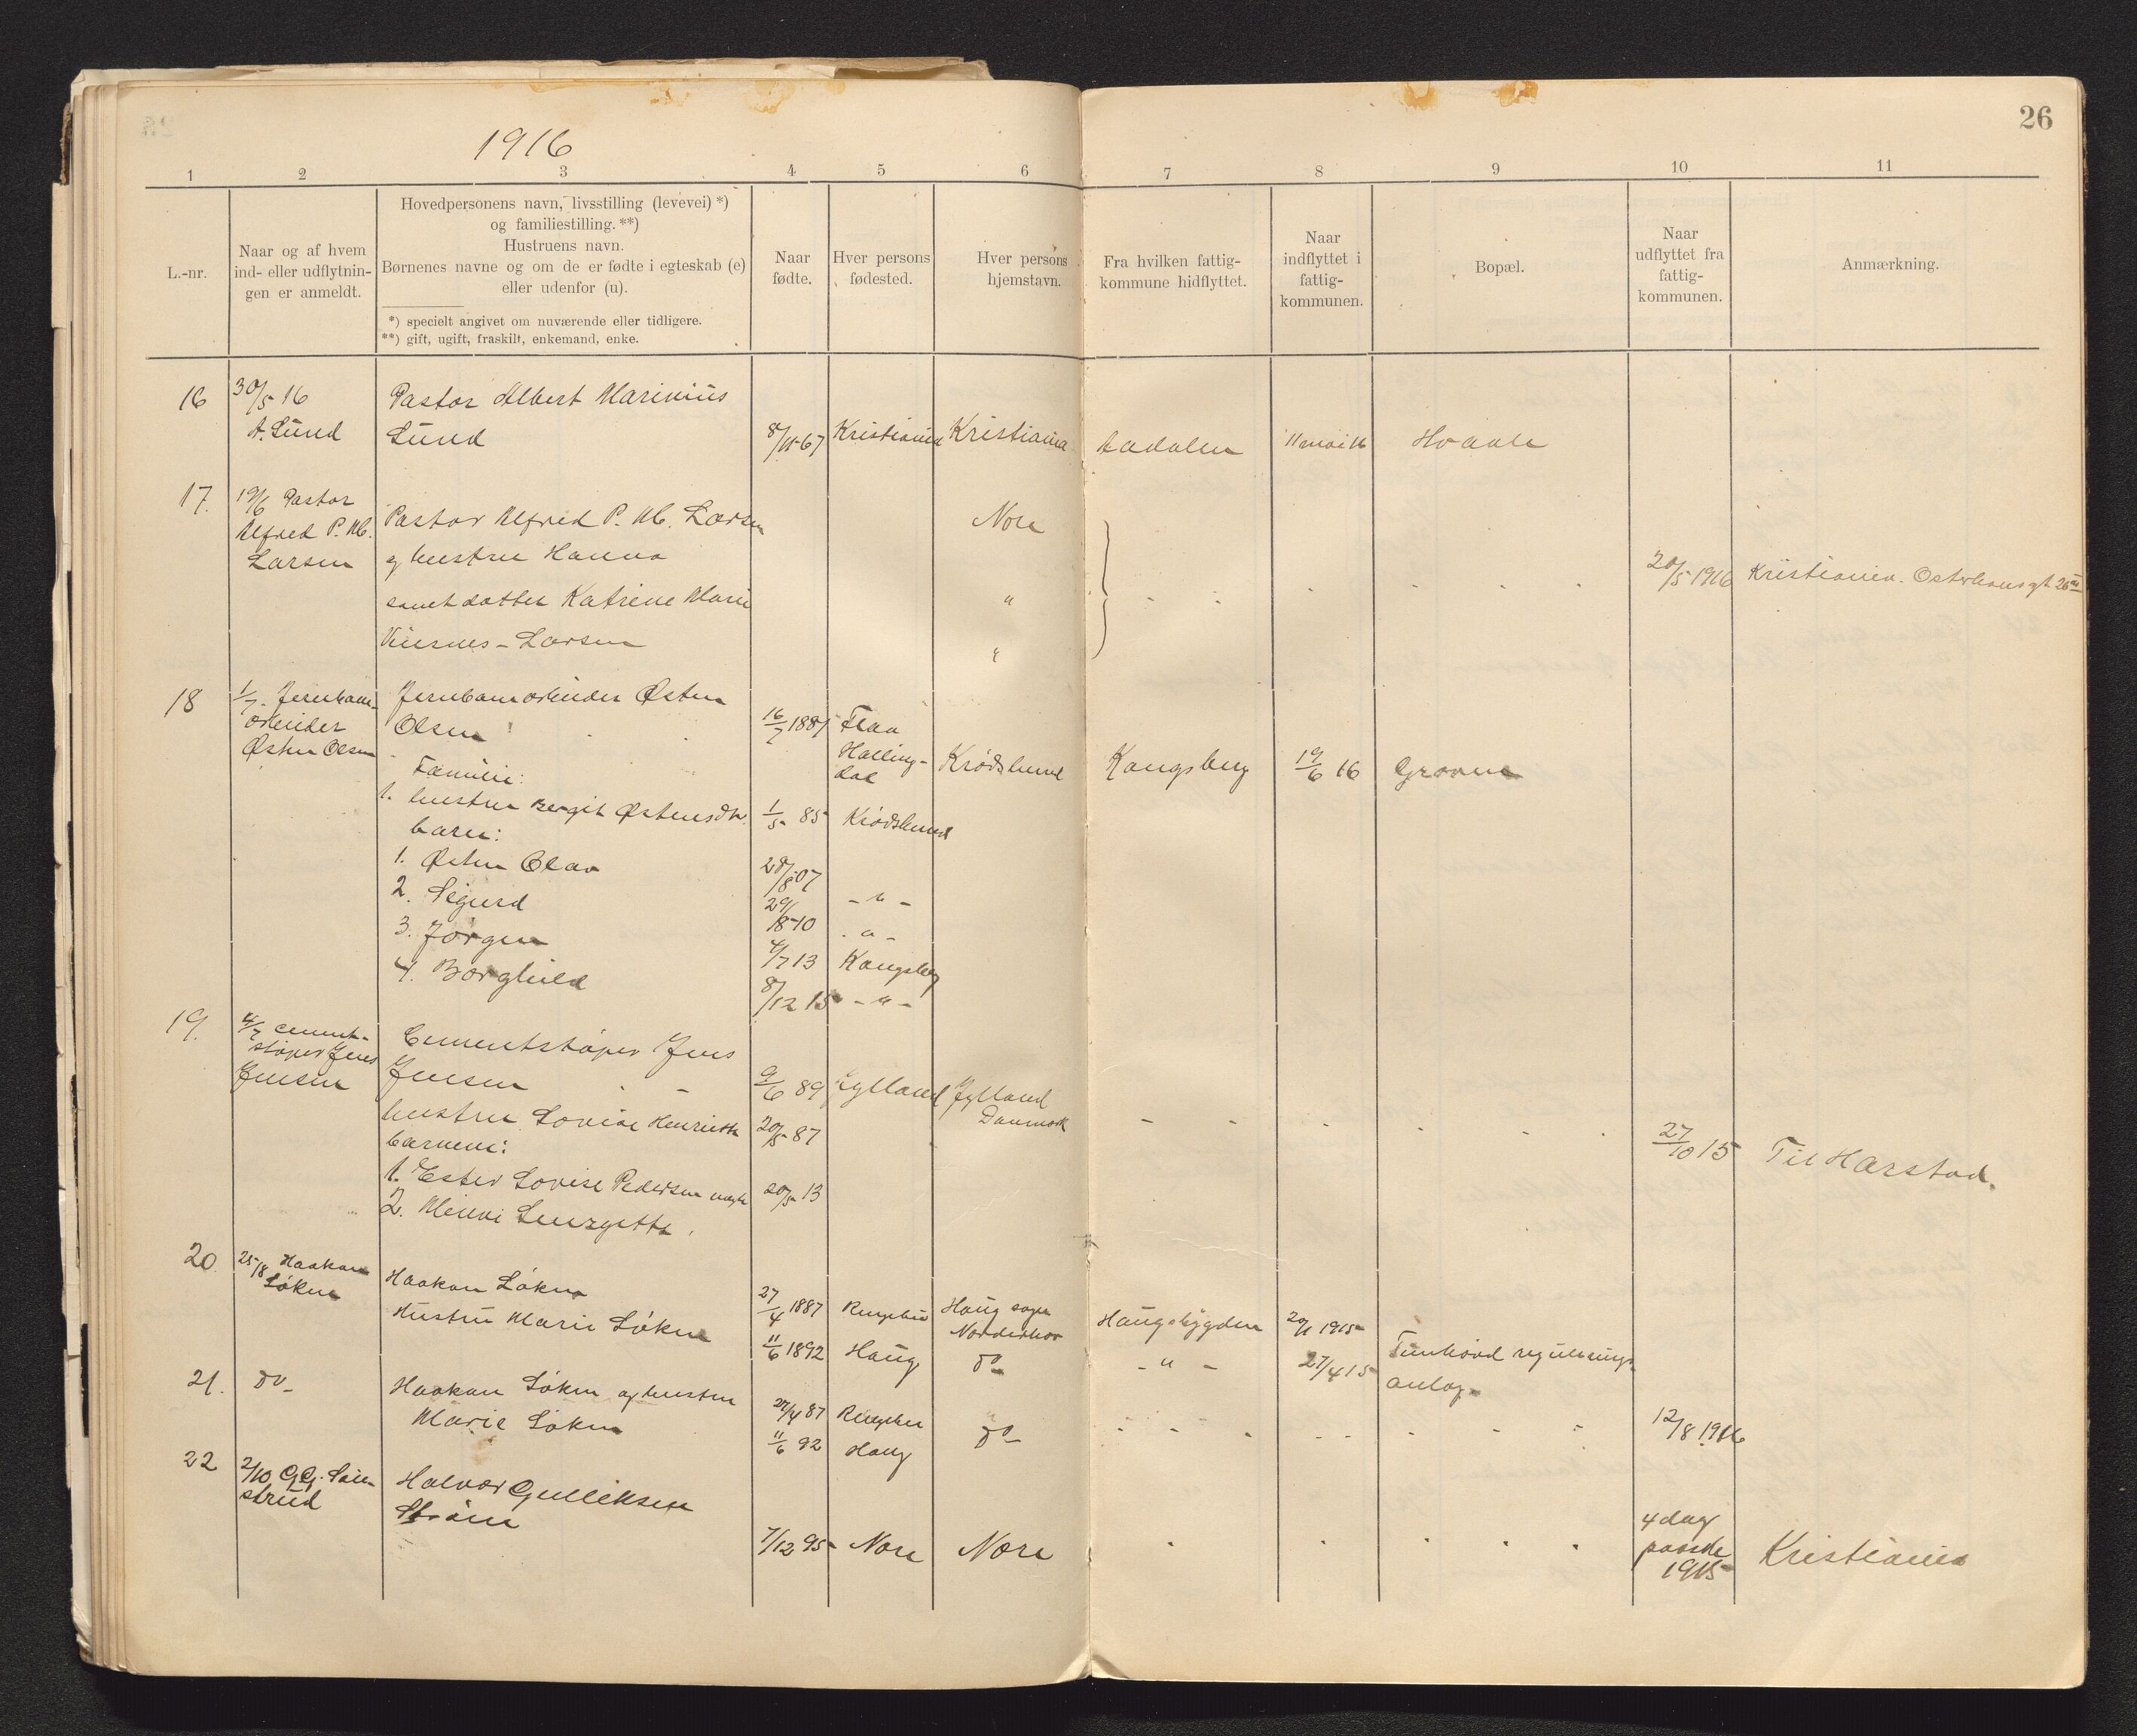 26
1916
1 2 3 4 5 6 7 8 9 10 11
L.-nr.
Naar og af hvem
ind- eller udflytnin-
gen er anmeldt.
Hovedpersonens navn, livsstilling (levevei) *)
og familiestilling. **)
Hustruens navn.
Børnenes navne og om de er fødte i egteskab (e)
eller udenfor (u).
*) specielt angivet om nuværende eller tidligere.
**) gift, ugift, fraskilt, enkemand, enke.
Naar
fødte.
Hver persons
fødested.
Hver persons
hjemstavn.
Fra hvilken fattig-
kommune hidflyttet.
Naar
indflyttet i
fattig-
kommunen.
Bopæl.
Naar
udflyttet fra
fattig-
kommunen.
Anmærkning.
16 30/5 16 Pastor Albert Marinius
A. Lund Lund 8/11-67 Kristiania Kristiania Aadalen 11 mai 16 Hvaale
17. 19/6 Pastor
Alfred P. Mb. Pastor Alfred P. Mb. Larsen Nore
Larsen og hustru Hanna 20/5 1916 Kristiania. Osterhausgt 26
samt datter Katrine Marie "
Larsen "
18 1/7. Jernbane- Jernbanearbeider Østen
arbeider Olsen 16/7 188 Flaa
Østen Olsen Halling-
dal Krødsherred Kongsberg 19/6 16 Groven
Familie:
1. hustru Bergit Østensdtr. 1/5 85 Krødsherred
barn:
1. Østen Olav 28/8 07
2. Sigurd 29/8-10 - " -
3. Jørgen 4/7 13 Kongsberg
4. Borghild 8/12 15 - " -
19. 4/7 cement- Cementstøper Jens
støper Jens
Jensen Jensen 9/6 89 Jylland Jylland
Danmark
hustru Lovise Henriette 20/5 87 27/10 15 Til Harstad.
barnene:
1. Ester Lovise Pedersen 20/5 13
2.
20. 25/8 Haakon Haakon Løken 27/4 1887 Ringebu Haug sogn
Løken Norderhov Haugsbygden 1915
Hustru Marie Løken 11/6 1892 Haug do - " - 27/4 15 Tunhovd regulerings
anlæg.
21. do Haakon Løken og hustru 27/4 87 Ringebu
Marie Løken 11/6 92 Haug do 12/8 1916
22 2/10 G.G. Halvor Gulliksen
strud
7/12 95 Nore Nore 4 dag
paaske
1915 Kristiania